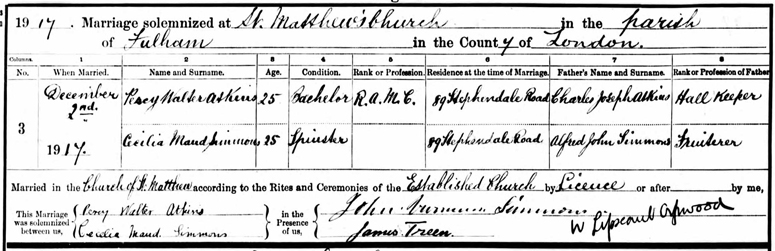 1917. Marriage solemnized at St. Matthew's Church in the parish
of Fulham in the County of London.
Columns. 1 2 3 4 5 6 7 8
No. When Married. Name and Surname. Age. Condition. Rank or Profession. Residence at the time of Marriage. Father's Name and Surname. Rank or Profession of Father
3 December 2nd. 1917. Percy Walter Atkins 25 Bachelor R.A.M.C. 89 Stephendale Road Charles Joseph Atkins Hall Keeper
Cecilia Maud Simmons 25 Spinster 89 Stephendale Road Alfred John Simmons Fruiterer
Married in the Church of St. Matthew according to the Rites and Ceremonies of the Established Church by Licence or after by me,
This Marriage was solemnized between us, Percy Walter Atkins
Cecilia Maud Simmons
in the Presence of us, John Simmons
James Treen.
W Lipscomb